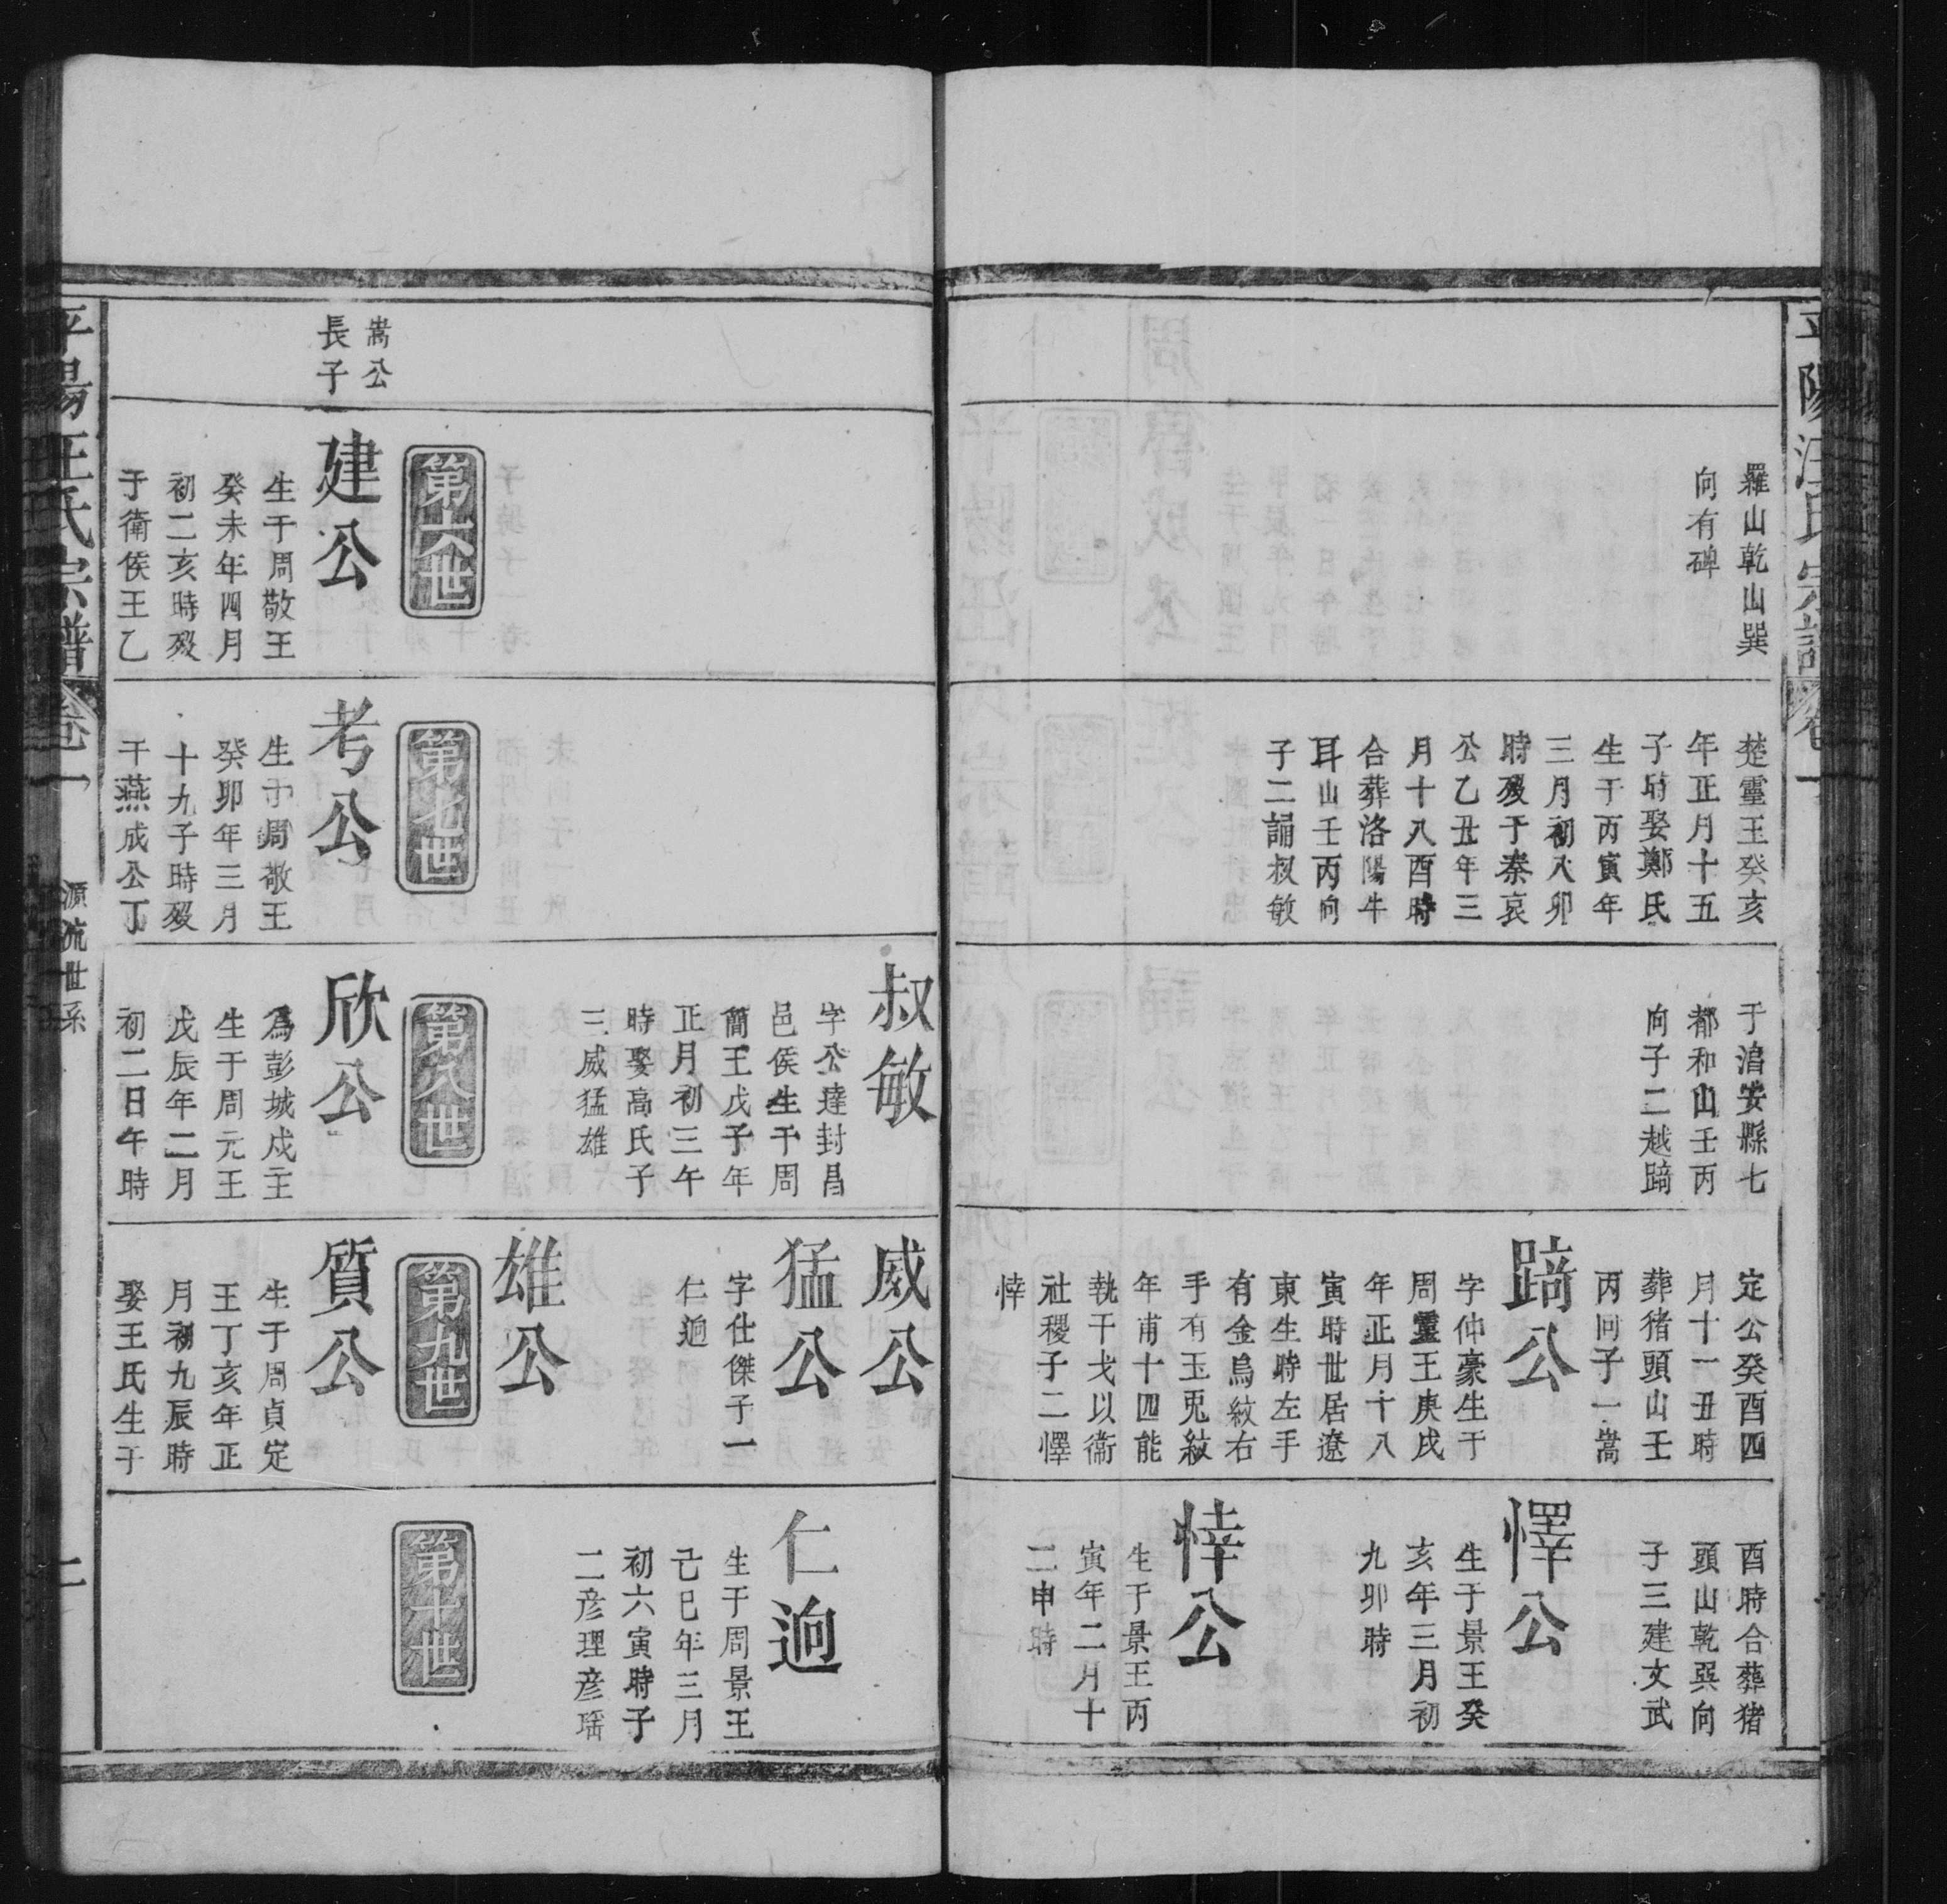 平陽汪氏宗譜
卷一
羅山乾山巽
向有碑
楚靈王癸亥
年正月十五
子時娶鄭氏
生于丙寅年
三月初八卯
時歿于秦哀
公乙丑年三
月十八酉時
合葬洛陽牛
耳山壬丙向
子二誦叔敏
于淯安縣七
都和山壬丙
向子二越踦
定公癸酉四
月十一丑時
葬猪頭山壬
丙向子一嵩
踦公
字仲豪生于
周靈王庚戌
年正月十八
寅時世居遼
東生時左手
有金烏紋右
手有玉兎紋
年甫十四能
執干戈以衞
社稷子二懌
悻
酉時合葬猪
頭山乾巽向
子三建文武
懌公
生于景王癸
亥年三月初
九卯時
悻公
生于景王丙
寅年二月十
二申時
叔敏
字公達封昌
邑侯生于周
簡王戊子年
正月初三午
時娶高氏子
三威猛雄
威公
猛公
字仕傑子一
仁逈
雄公
仁逈
生于周景王
己巳年三月
初六寅時子
二彦理彦瑶
嵩公
長子
第六世
建公
生于周敬王
癸未年四月
初二亥時歿
于衛侯王乙
第七世
考公
生于周敬王
癸卯年三月
十九子時歿
于燕成公丁
第八世
欣公
爲彭城戍主
生于周元王
戊辰年二月
初二日午時
第九世
質公
生于周貞定
王丁亥年正
月初九辰時
娶王氏生于
第十世
平陽汪氏宗譜
卷一
源流世系
二